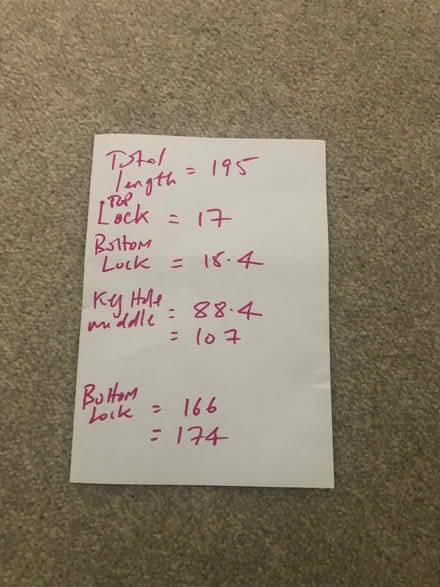 Total
length = 195
Top
Lock = 17
Bottom
Lock = 18.4
Key Hole
middle = 88.4
= 107
Bottom
Lock = 166
= 174